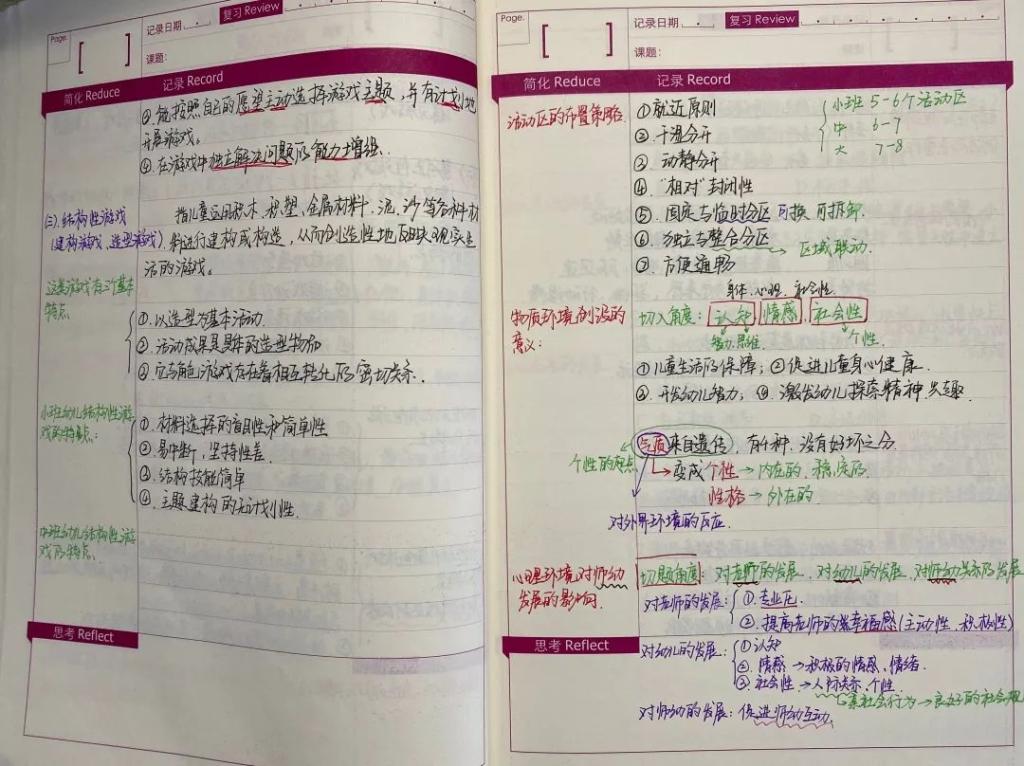 Page.
记录日期
复习 Review
课题：
简化 Reduce
记录 Record
③.能按照自己的愿望主动选择游戏主题，并有计划地
开展游戏。
④.在游戏中独立解决问题的能力增强.
(三).结构性游戏
(建构游戏、造型游戏).
指儿童运用积木、积塑、金属材料、泥、沙等各种材
料进行建构或构造，从而创造性地反映现实生
活的游戏。
这类游戏有三个基本
特点
①.以造型为基本活动.
②.活动成果是具体的造型物品
③.它与角色游戏存在着相互转化的密切关系.
小班幼儿结构性游
戏的特点：
①.材料选择的盲目性和简单性
②.易中断，坚持性差.
③.结构技能简单
④.主题建构的无计划性.
中班幼儿结构性游
戏的特点.
思考 Reflect
Page.
记录日期
复习 Review
课题：
简化 Reduce
记录 Record
活动区的布置策略.
①就近原则
②.干湿分开
③.动静分开
④."相对"封闭性
⑤.固定与临时分区 可换 可拆卸.
⑥.独立与整合分区 → 区域联动.
⑦.方便通畅
小班 5-6个活动区
中 6-7
大 7-8
物质环境创设的
意义：
身体.心理.社会性
切入角度：认知 情感.社会性
智力.思维
个性.
①儿童生活的保障；②促进儿童身心健康.
③.开发幼儿智力；④.激发幼儿探索精神 兴趣.
气质来自遗传，有4种.没有好坏之分
个性的
→变成个性→内在的.稳定的
性格→外在的
对外界环境的反应.
心理环境对师幼
发展的影响.
角度：对老师的发展.对幼儿的发展.对师幼关系的发展
对老师的发展：①.专业化.
②.提高老师的幸福感(主动性、积极性)
思考 Reflect
对幼儿的发展：①认知
②.情感→积极的情感、情绪.
③.社会性→人际关系.个性.
亲社会行为→良好的社会
对师幼的发展：促进师幼互动.